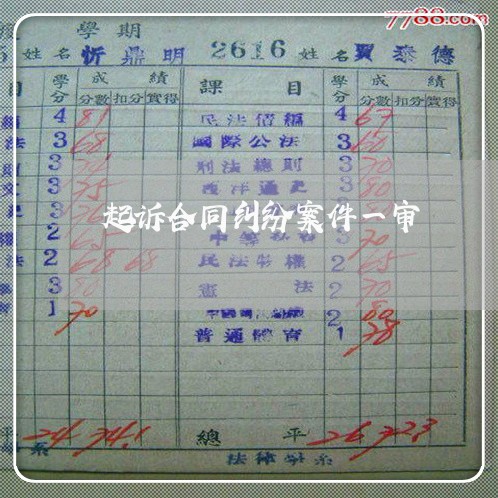 7788.com
學期
5 姓名 忻鼎明 2616 姓名 賈泰德
目 學分 成績 課目 學分 成績
分數 扣分 實得 分數 扣分 實得
4 81 民法債編 4 67
法 3 68 國際公法 3 60
3 刑法總則 3 70
3 75 西洋通史 3 80
3
起诉合同纠纷案件一审
2 65 3 70
法 2 68 68 民法物權 2 65
3 80 憲法 2 70
1 70 2 80
普通體育 1 78
平 24 74.1 總平 26 72.3
系 法律學系